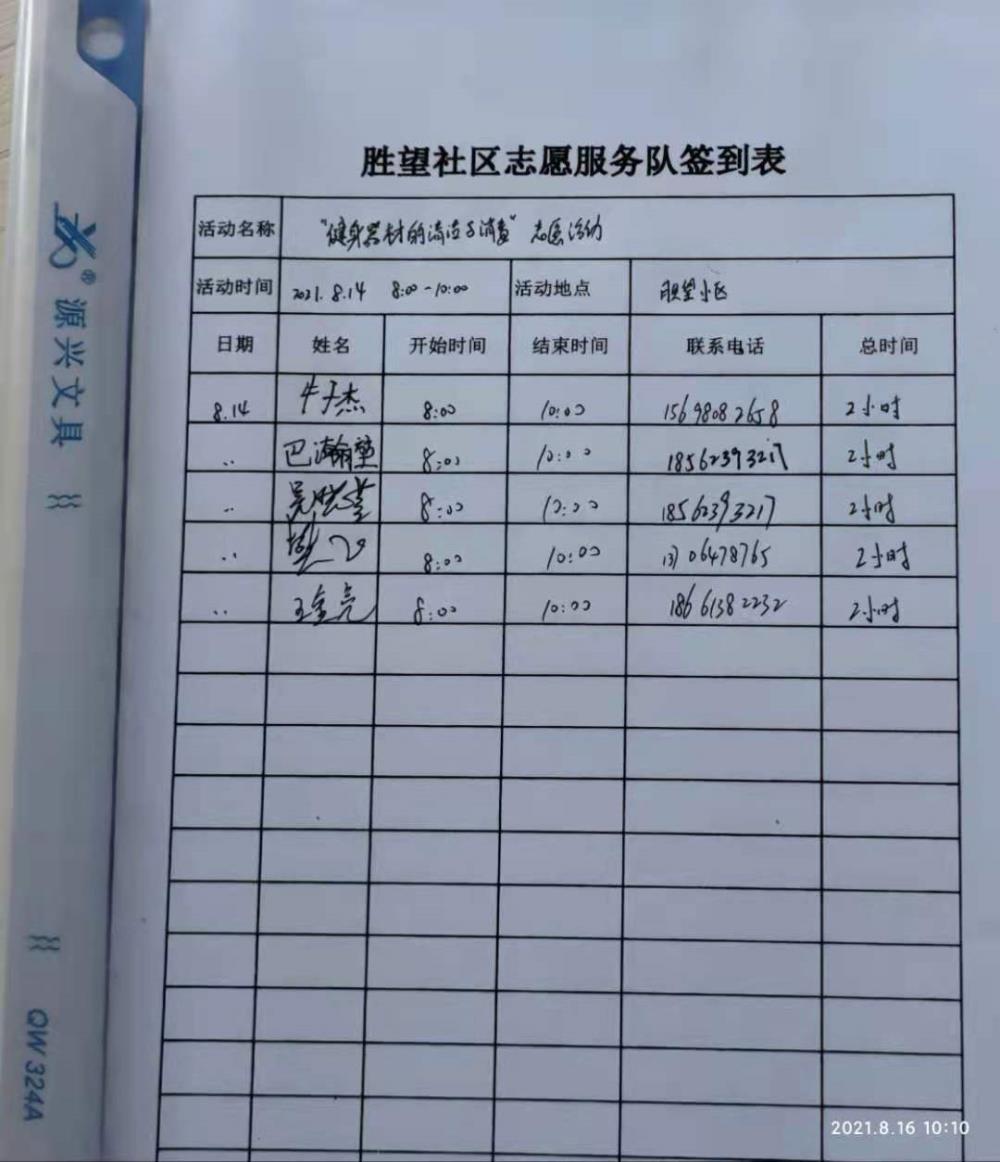 胜望社区志愿服务队签到表
活动名称 "健身器材的清洁与消毒" 志愿活动
活动时间 2021.8.14 8:00-10:00 活动地点 胜望小区
日期 姓名 开始时间 结束时间 联系电话 总时间
8.14 牛子杰 8:00 10:00 15698082658 2小时
.. 巴瀚堃 8:00 10:00 18562393217 2小时
.. 8:00 10:00 18562393217 2小时
.. 8:00 10:00 13706478765 2小时
.. 王金亮 8:00 10:00 18661382232 2小时
源兴文具
QW 324A
2021.8.16 10:10